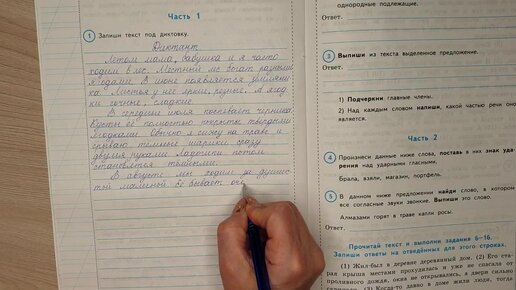 Часть 1
1 Запиши текст под диктовку.
Диктант
Летом мама, бабушка и я часто
ходим в лес. Местный лес богат разными
ягодами. В июне появляется земляни-
ка. Листья у неё яркие, резные. А ягод-
ки сочные, сладкие.
В середине июля поспевает черника.
Кусты её полностью покрыты твёрдыми
ягодками. Обычно я сижу на траве и
срываю темные шарики сразу
двумя руками. Ладошки потом
становятся тёмными.
В августе мы ходим за душис-
той малиной. Её бывает оч
однородные подлежащие.
Ответ.
3 Выпиши из текста выделенное предложение.
1) Подчеркни главные члены.
2) Над каждым словом напиши, какой частью речи оно
является.
Часть 2
4 Произнеси данные ниже слова, поставь в них знак уда-
рения над ударными гласными.
Брала, взяли, магазин, портфель.
5 В данном ниже предложении найди слово, в котором
все согласные звуки звонкие. Выпиши это слово.
Алмазами горят в траве капли росы.
Ответ.
Прочитай текст и выполни задания 6–16.
Запиши ответы на отведённых для этого строках.
(1) Жил-был в деревне деревянный дом. (2) Его ста-
рая крыша местами прохудилась и уже не спасала от
проливного дождя, окна не открывались, а двери сильно
(3) Когда-то давно в доме жили люди, тогда